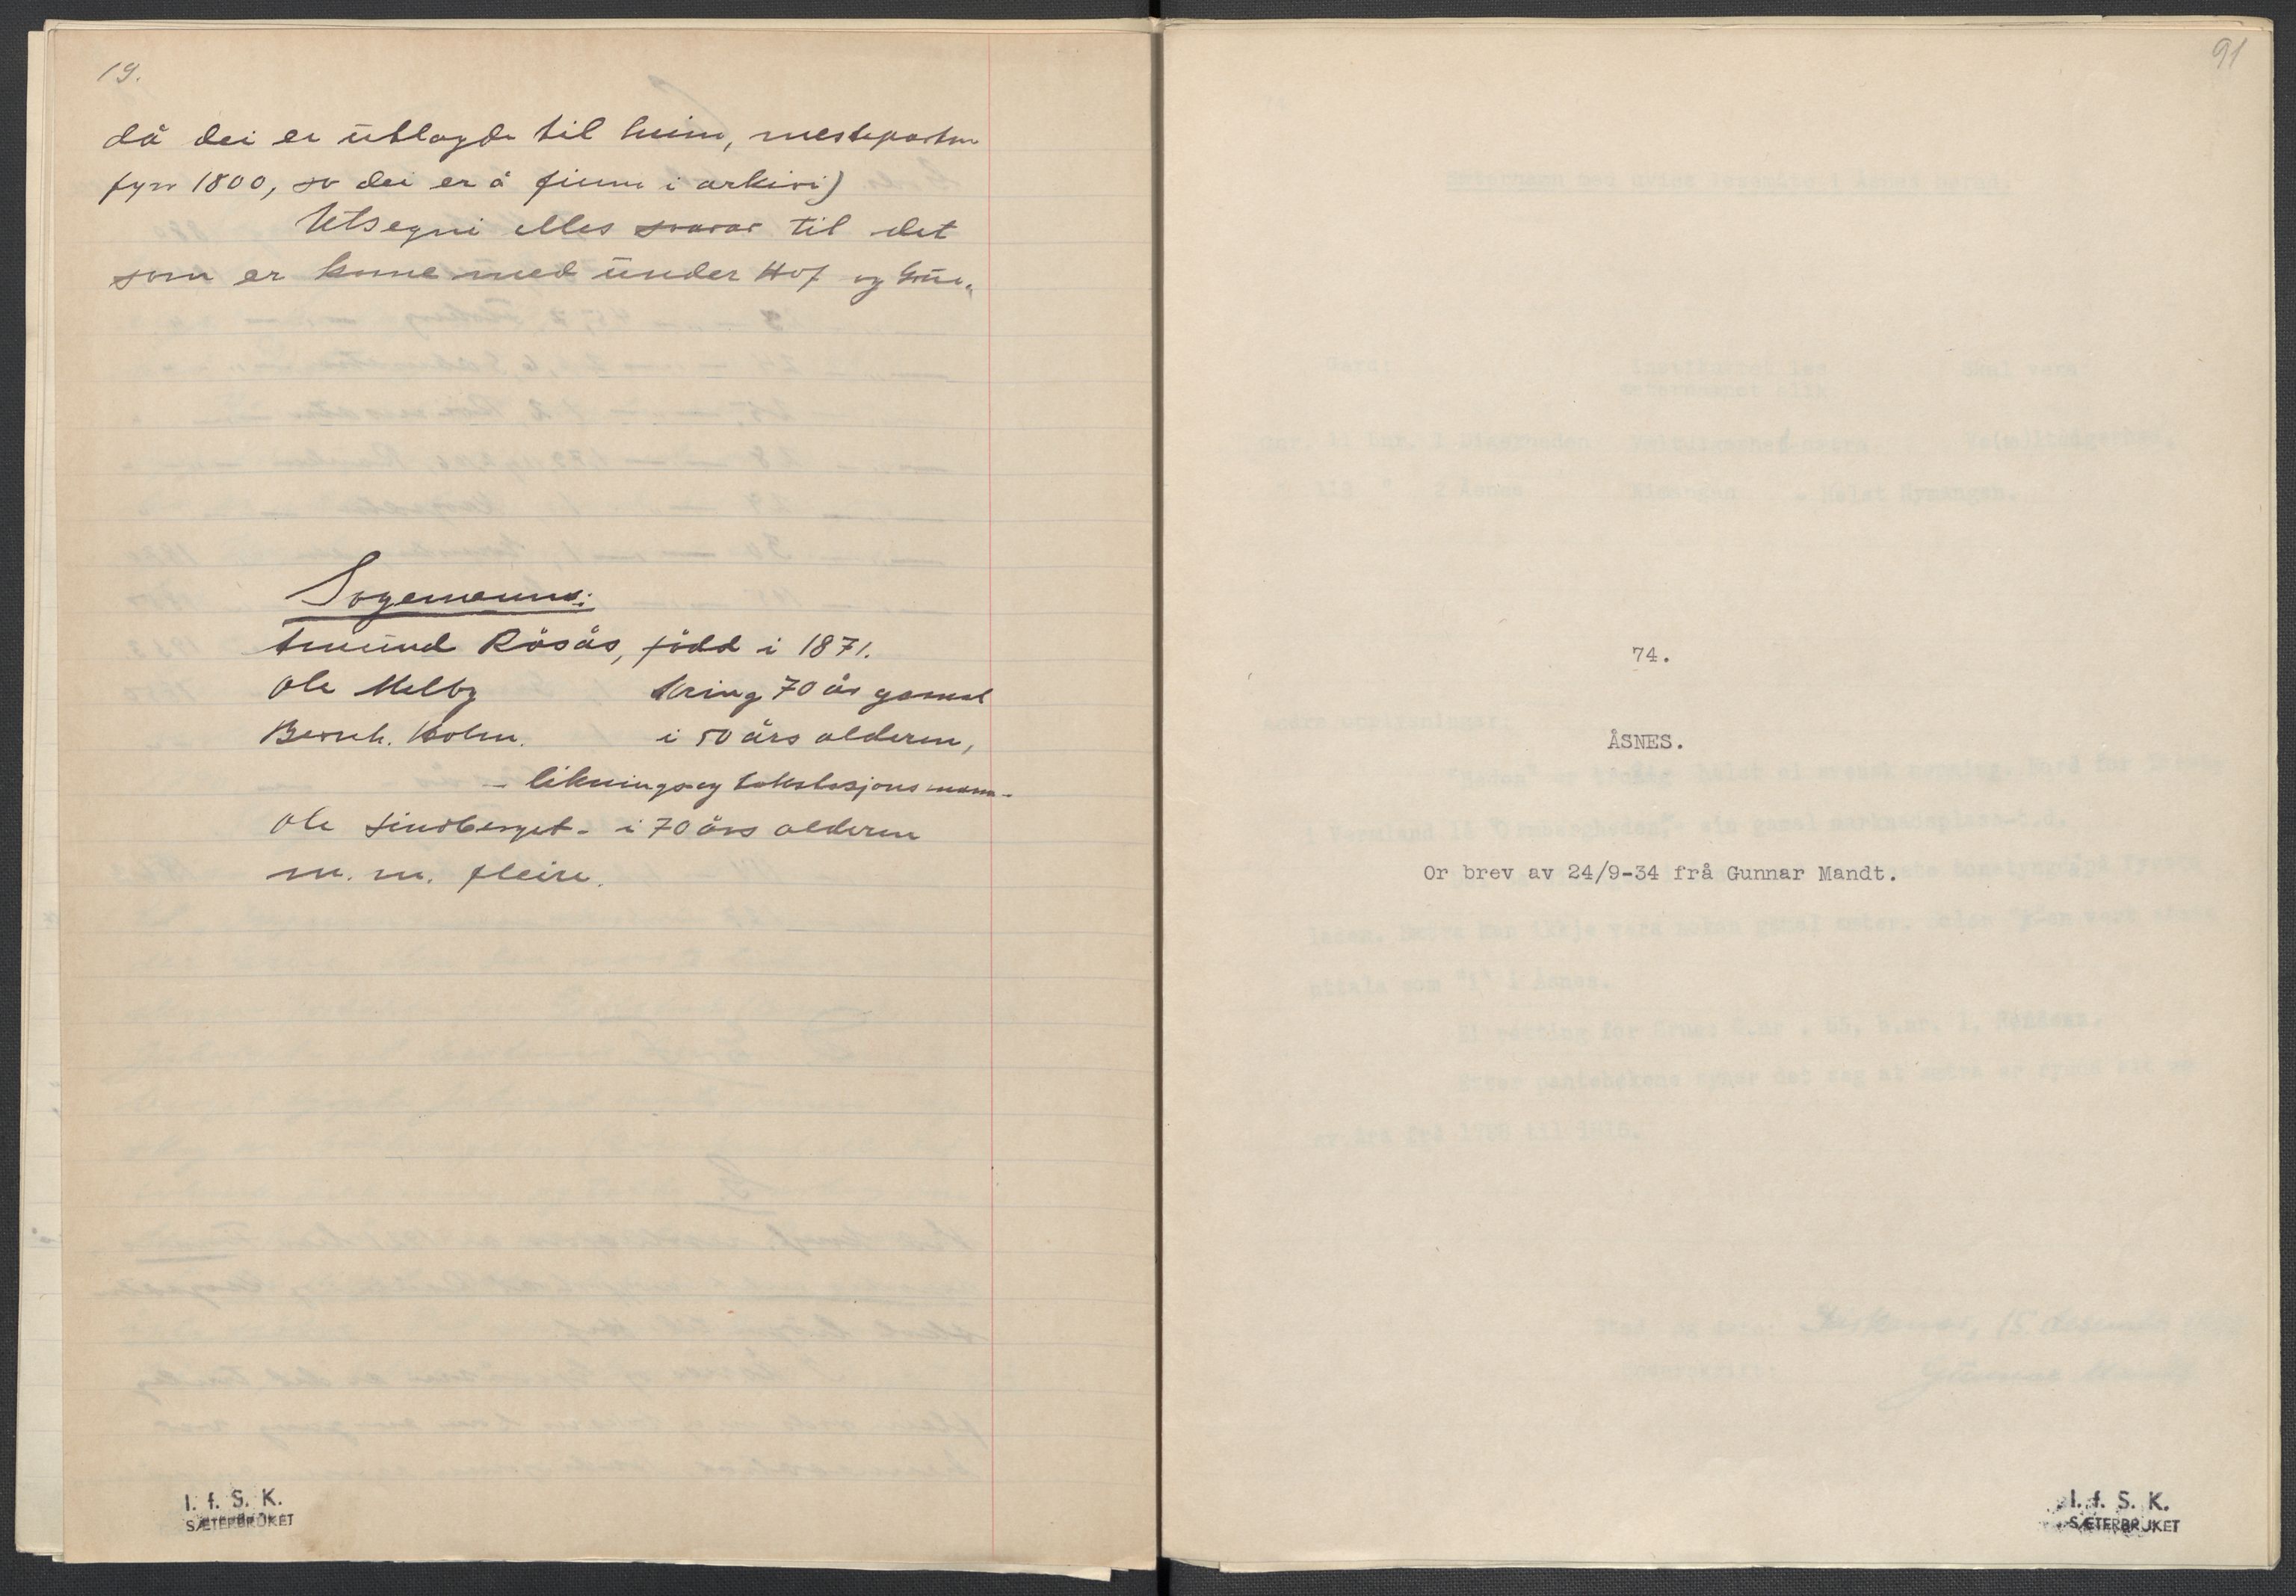 19.
då dei er utlagde til heim, mesteparten
fyrr 1800, so dei er å finne i arkivi)
Utsegni elles svarar til det
som er kome med under Hof og Grue.
Sogemenn:
Amund Råsås, född i 1871.
Ole Melby kring 70 år gamal
Bernh. Holm. i 50 års alderen,
- liknings og takstasjons mann -
Ole Lindberget - i 70 års alderen
m. m. fleire.
I. f. S. K.
SÆTERBRUKET
91
74.
ÅSNES.
Or brev av 24/9-34 frå Gunnar Mandt.
I. f. S. K.
SÆTERBRUKET